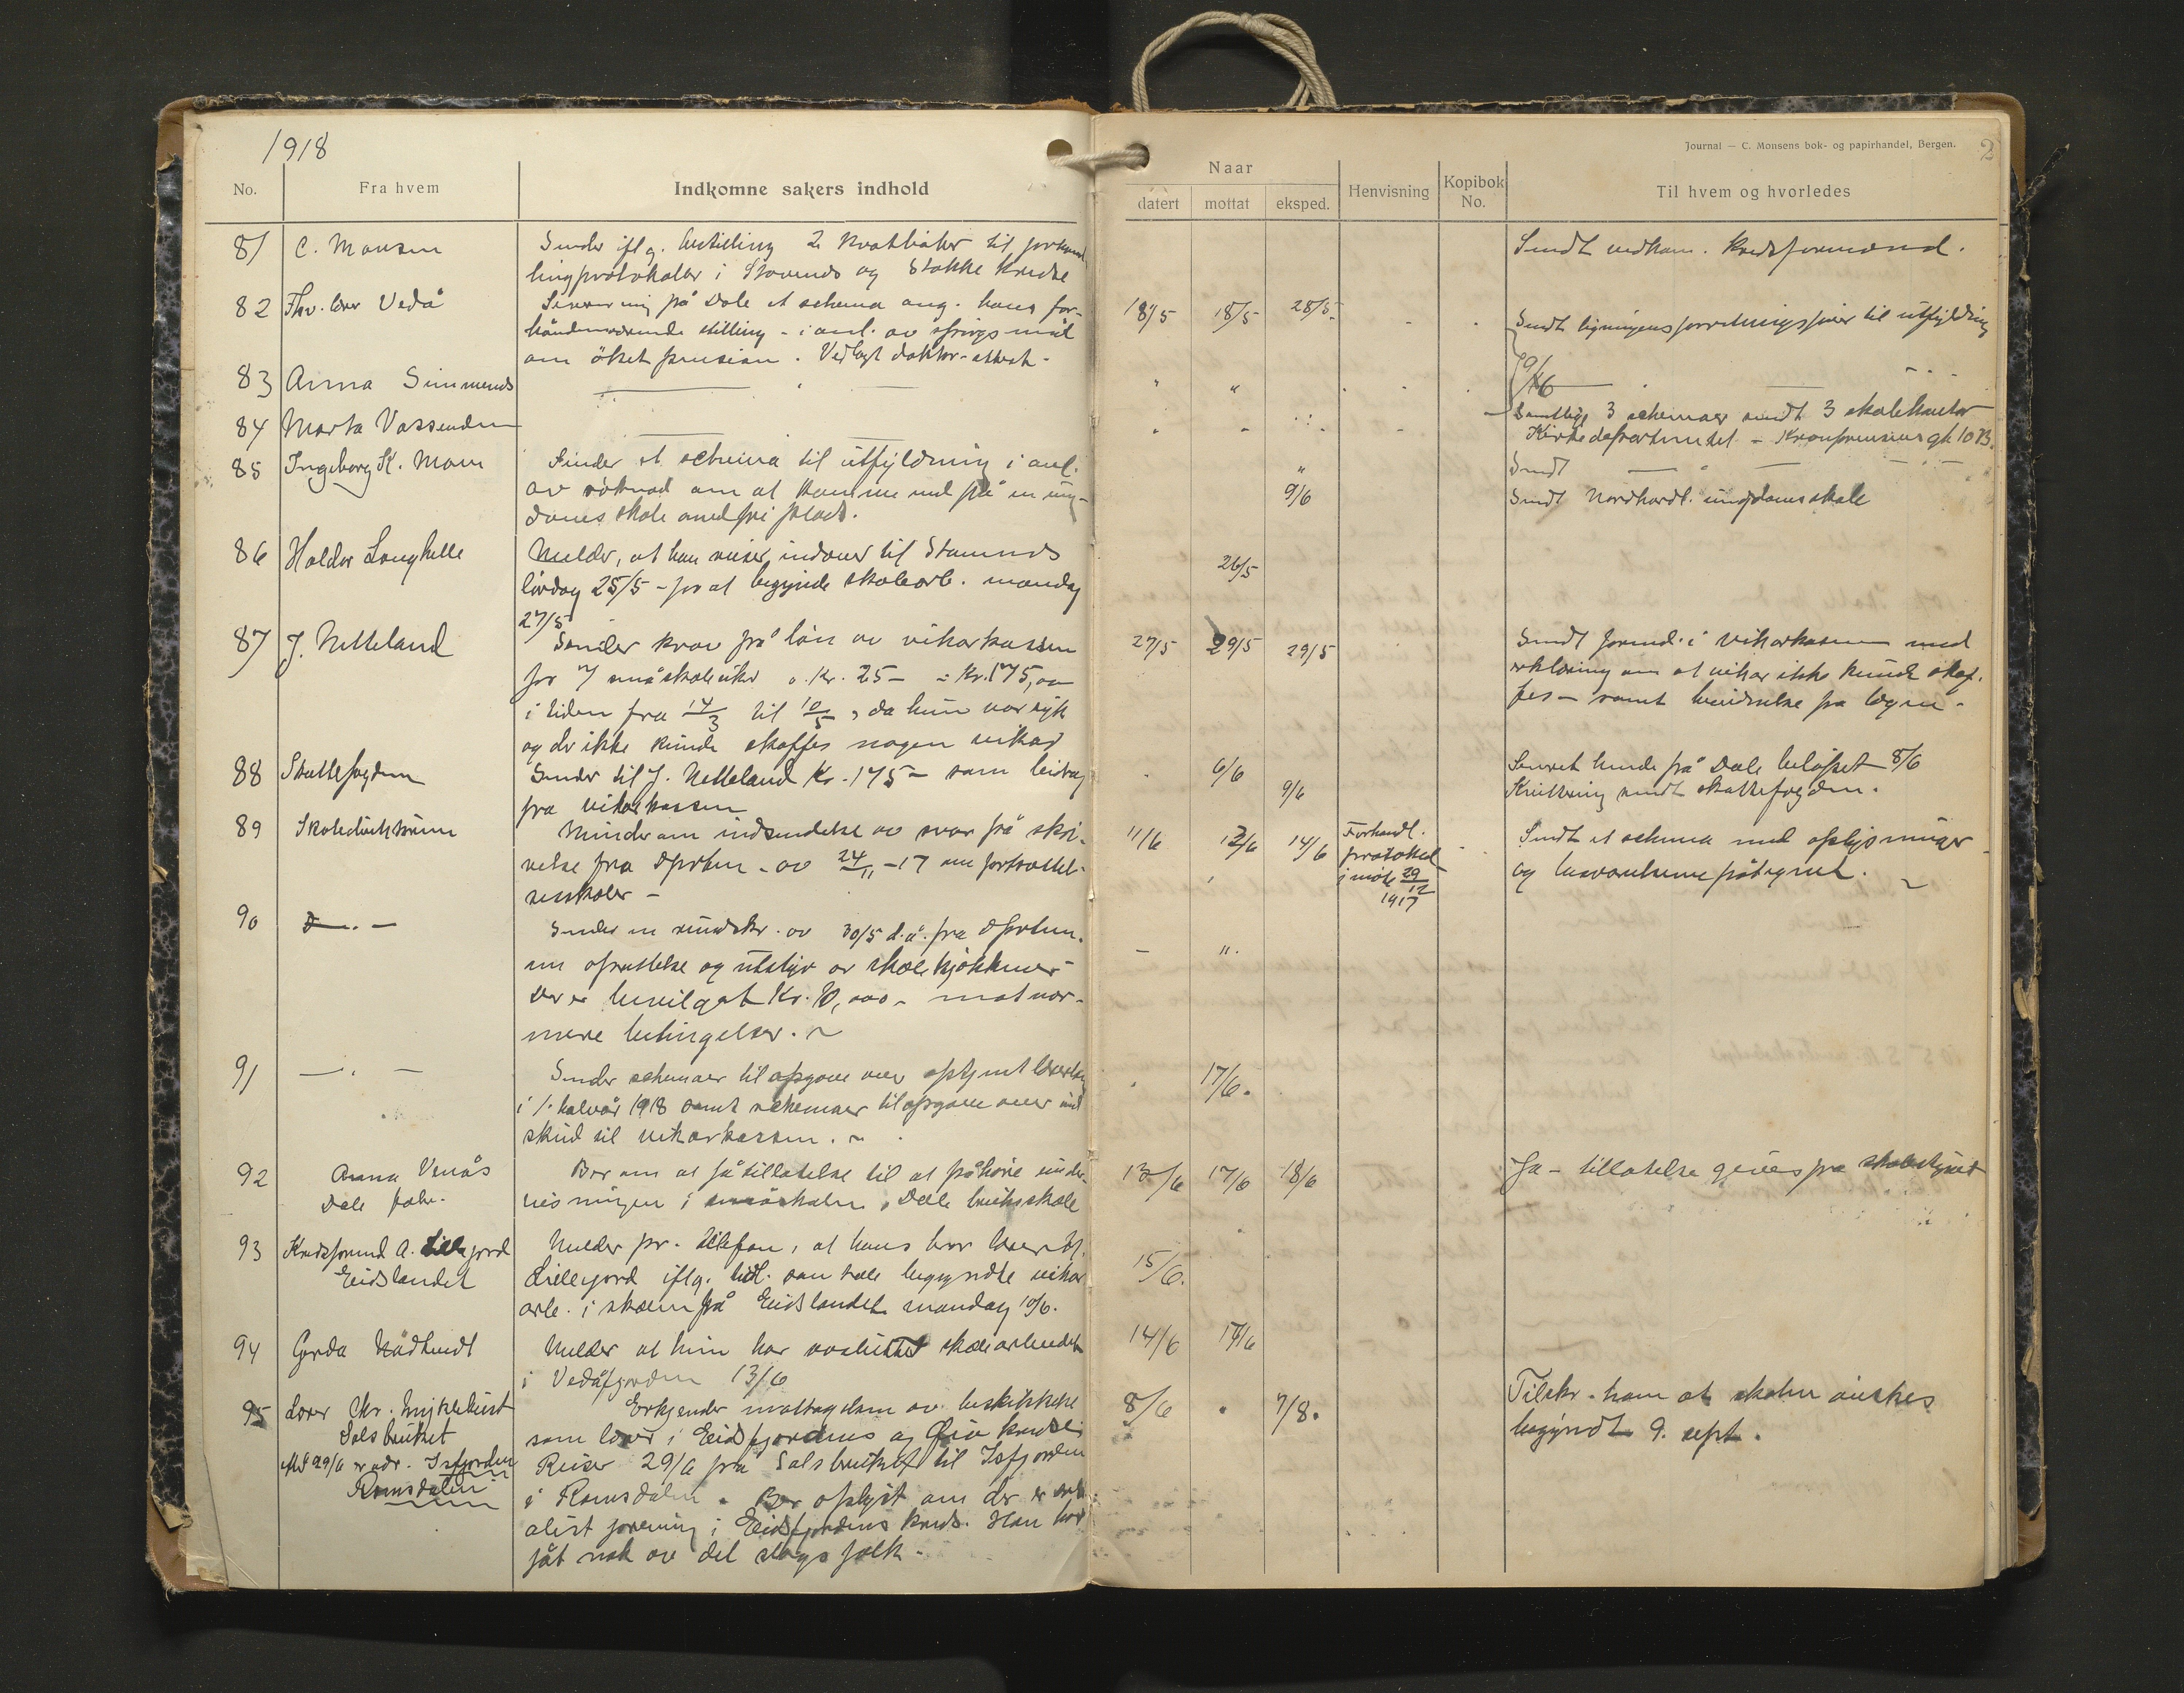 1918
No.
Fra hvem
Indkomne sakers indhold
Journal — C. Monsens bok- og papirhandel, Bergen.
2
Naar
datert
mottat
eksped.
Henvisning
Kopibok No.
Til hvem og hvorledes
81 C. Monsen Sender iflg. bestilling 2 til forhand
lingsprotokoller i Stavenes og Stokke kredse
Sendt vedkom. kredsformænd.
82 Fhv. lærer Vedå på Dale et schema ang. hans for-
stilling - i anl. av spörgsmål
om öket pension. Vedlagt doktor-attest.
18/5 18/5 28/5
Sendt ligningens til utfyldning
9/6
83 Anna Simmenes
84 Marta Vassenden
Samtlige 3 schemaer sendt 3 skolekontor
Kirkedepartmentet - Kronprinsens gt. 10 B.
85 Ingeborg K. Mom Sender et schema til utfyldning i anl.
av söknad om at komme ind på en ung-
doms skole med fri plads.
Sendt
9/6
Sendt Nordhordl. ungdomsskole
86 Haldor Langhelle Melder, at han reiser indover til Stamnes
lördag 25/5 - for at begynde skolearb. mandag
27/5
26/5
87 J. Netteland Sender krav på lön av vikarkassen
for 7 småskoleuker a. Kr. 25 - = Kr. 175,00
i tiden fra 14/3 til 10/5, da hun var syk
og der ikke kunde skaffes nogen vikar
27/5 29/5 29/5
Sendt formd. i vikarkassen med
erklæring om at vikar ikke kunde skaf-
fes - samt henvendelse fra lægen.
88 Skattefogden Sender til J. Netteland Kr. 175 - som bidrag
fra vikarkassen
6/6
9/6
Sendt hende på Dale belöpet 8/6
Kvittering sendt skattefogden.
89 Skoledirektören Minder om indsendelse av svar på skri-
velse fra dprtm. av 24/11 -17 om fortsættel-
sesskoler -
11/6 13/6 14/6
Forhandl.
protokol
i möte 29/12
1917
Sendt et schema med oplysninger
og besvarelserne påtegnet.
90 Sender en rundskr. av 30/5 d.å. fra dprtm.
om oprettelse og utstyr av skolekjökkener
Der er bevilget Kr. 10,000 - mot nær-
mere betingelser.
91 Sender schemaer til opgave over optjent
i 1. halvår 1918 samt schemaer til opgave over ind
skud til vikarkassen.
17/6.
92 Anna Venås
Dale fabr.
Ber om at få tillatelse til at påhöre under-
visningen i småskolen, Dale bruksskole
13/6 17/6 18/6
Ja - tillatelse gives fra skolestyret
93 Kredsformd A. Lillejord
Eidslandet
Melder pr. telefon, at hans bror lærer
Lillejord iflg. tidl. samtale begyndte vikar
arb. i skolen på Eidslandet mandag 10/6.
15/6.
94 Gerda Nådtvedt Melder at hun har avsluttet skolearbeidet
i Vedåfjorden 13/6
14/6 17/6
95 Lærer Chr. Myklebust
Salsbruket
29/6 er adr. Isfjorden
Romsdalen
Erkjender mottagelsen av beskikkelse
som lærer i Eidsfjordens og Öiо kredse
Reiser 29/6 fra Salsbruket til Isfjorden
i Romsdalen. Ber oplyst om der er
forening i Eidsfjordens kreds. Han har
fåt nok av det slags folk -
8/6 7/8.
Tilskr. ham at skolen önskes
begyndt 9. sept.